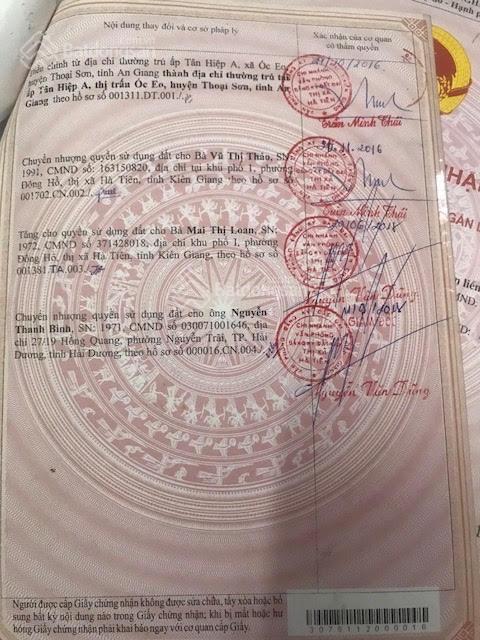 Nội dung thay đổi và cơ sở pháp lý
Xác nhận của cơ quan
có thẩm quyền
chính từ địa chỉ thường trú ấp Tân Hiệp A, xã Óc Eo,
huyện Thoại Sơn, An Giang thành địa chỉ thường trú tại
ấp Tân Hiệp A, thị trấn Óc Eo, huyện Thoại Sơn, tỉnh An
Giang theo hồ sơ số 001311.DT.001./.
10/2016
CHI NHÁNH
VĂN PHÒNG
ĐĂNG KÝ ĐẤT ĐAI
THỊ XÃ
HÀ TIÊN
Trần Minh Thái
Chuyển nhượng quyền sử dụng đất cho Bà Vũ Thị Thảo, SN:
1991, CMND số: 163150820, địa chỉ tại khu phố I, phường
Đông Hồ, thị xã Hà Tiên, tỉnh Kiên Giang, theo hồ sơ số
001702.CN.002./.
11-2016
CHI NHÁNH
VĂN PHÒNG
ĐĂNG KÝ ĐẤT ĐAI
THỊ XÃ
HÀ TIÊN
Trần Minh Thái
Tặng cho quyền sử dụng đất cho Bà Mai Thị Loan, SN:
1972, CMND số 371428018, địa chỉ khu phố I, phường
Đông Hồ, thị xã Hà Tiên, tỉnh Kiên Giang, theo hồ sơ số
001381.TA.003./.
/06/2018
CHI NHÁNH
VĂN PHÒNG
THỊ XÃ
HÀ TIÊN
Nguyễn Văn Dũng
Chuyển nhượng quyền sử dụng đất cho ông Nguyễn
Thanh Bình, SN: 1971, CMND số 030071001646, địa
chỉ 27/19 Hồng Quang, phường Nguyễn Trãi, TP. Hải
Dương, tỉnh Hải Dương, theo hồ sơ số 000016.CN.004./.
CHI NHÁNH
VĂN PHÒNG
ĐĂNG KÝ ĐẤT ĐAI
THỊ XÃ
HÀ TIÊN
Nguyễn Văn Dũng
Batdongsan
Người được cấp Giấy chứng nhận không được sửa chữa, tẩy xóa hoặc bổ
sung bất kỳ nội dung nào trong Giấy chứng nhận; khi bị mất hoặc hư
hỏng Giấy chứng nhận phải khai báo ngay với cơ quan cấp Giấy.
3076112000016